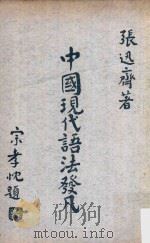 張迅齋著
中國現代語法發凡
宗孝忱題